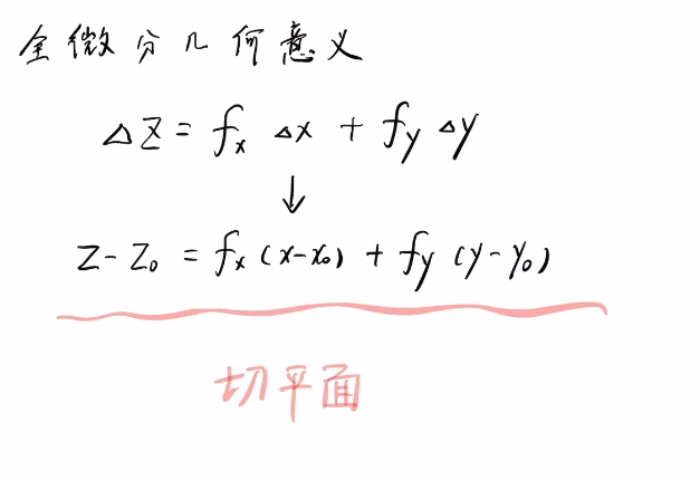 全微分几何意义
△z = fx △x + fy △y
↓
z - z₀ = fx (x-x₀) + fy (y-y₀)
切平面